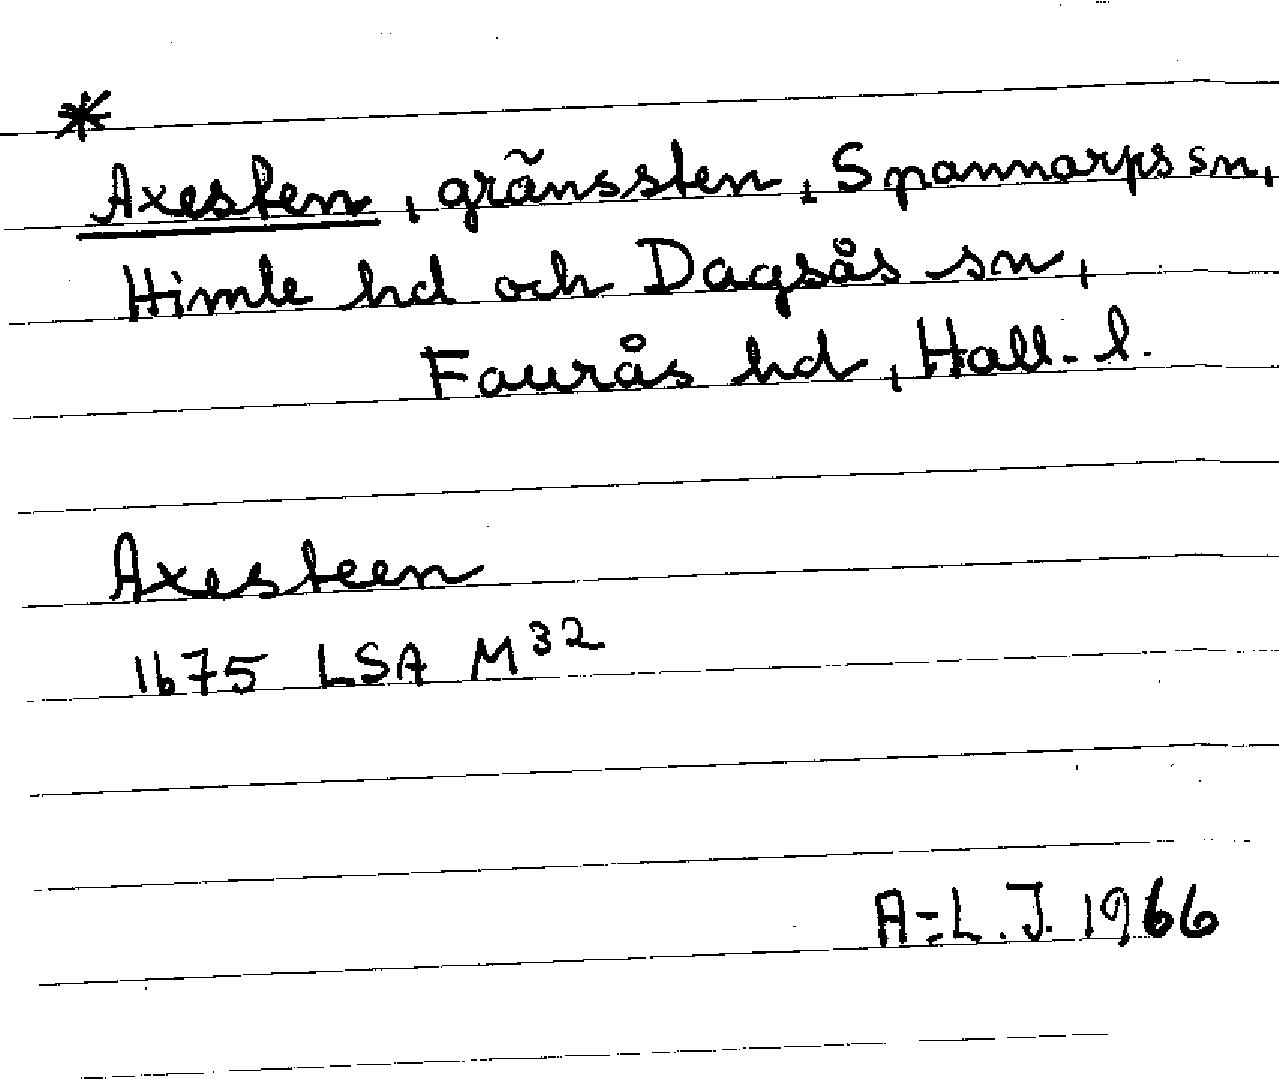 *
Axesten, gränssten, Spannarps sn,
Himle hd och Dagsås sn,
Faurås hd, Hall. l.
Axesteen
1675 LSA M32
A-L. J. 1966